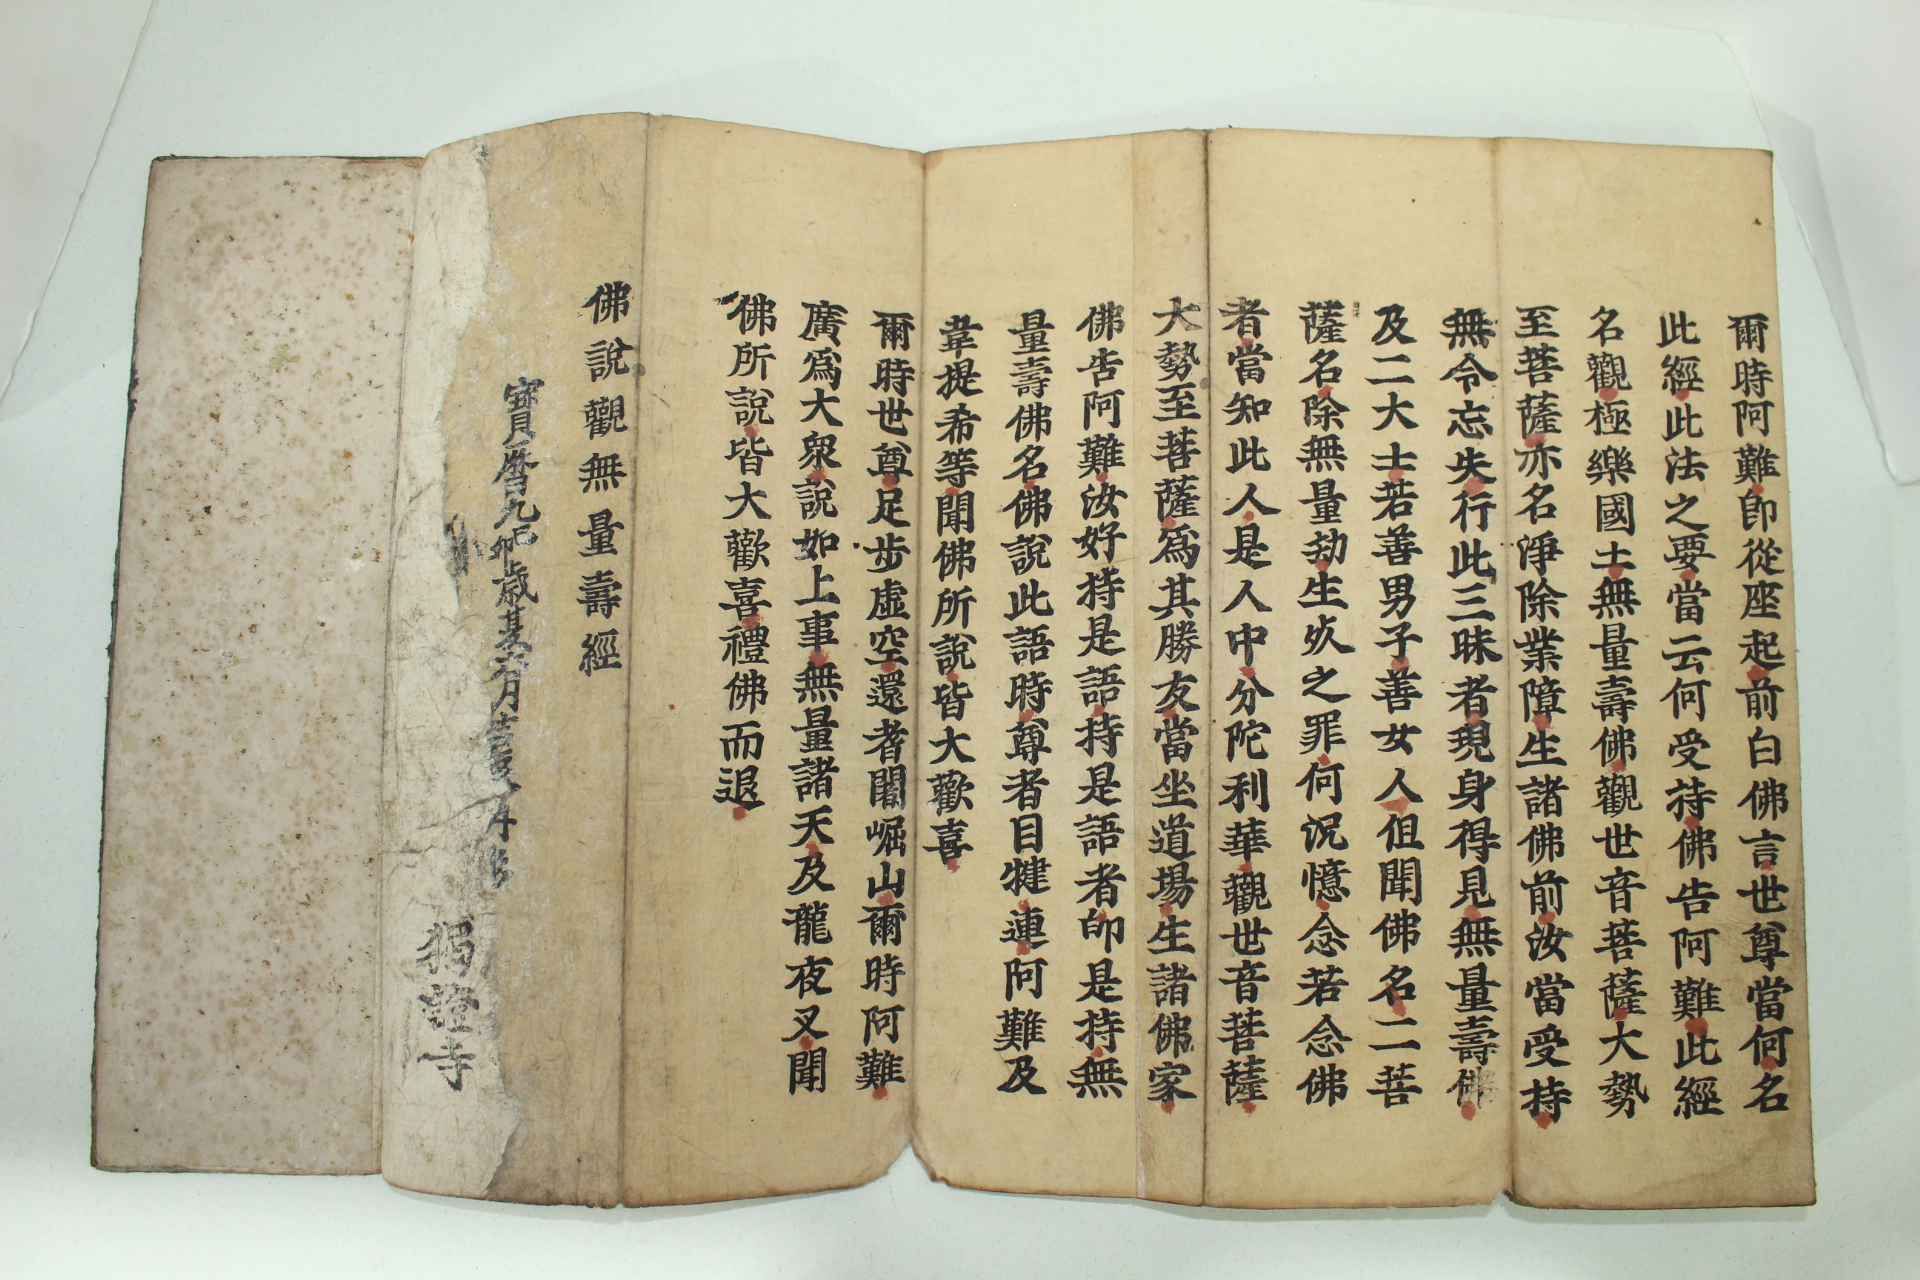 爾時阿難即從座起前白佛言世尊當何名
此經此法之要當云何受持佛告阿難此經
名觀極樂國土無量壽佛觀世音菩薩大勢
至菩薩亦名淨除業障生諸佛前汝當受持
無令忘失行此三昧者現身得見無量壽佛
及二大士若善男子善女人但聞佛名二菩
薩名除無量劫生死之罪何況憶念若念佛
者當知此人是人中分陀利華觀世音菩薩
大勢至菩薩爲其勝友當坐道場生諸佛家
佛告阿難汝好持是語持是語者即是持無
量壽佛名佛說此語時尊者目犍連阿難及
韋提希等聞佛所說皆大歡喜
爾時世尊足步虛空還耆闍崛山爾時阿難
廣爲大衆說如上事無量諸天及龍夜叉聞
佛所說皆大歡喜禮佛而退
佛說觀無量壽經
寳暦九己卯歳
六月
證寺